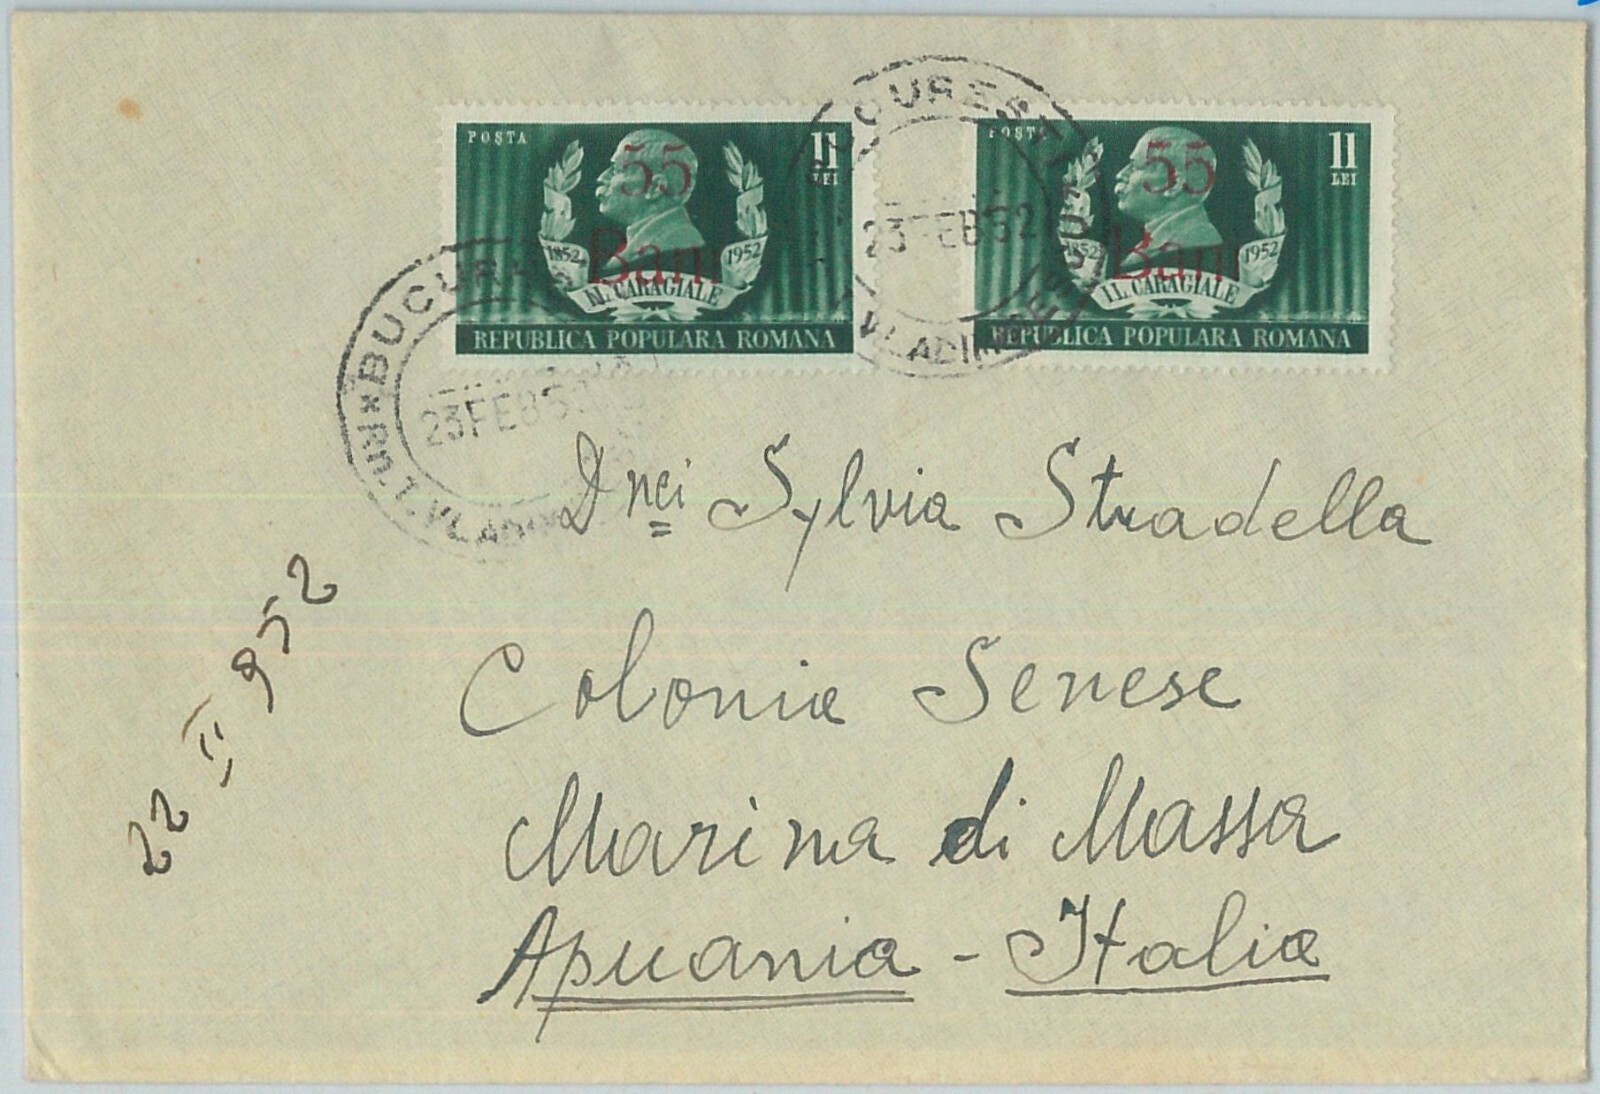 POȘTA 11 LEI
55
Bani
1852 1952
I.L. CARAGIALE
REPUBLICA POPULARA ROMANA
POȘTA 11 LEI
55
Bani
1852 1952
I.L. CARAGIALE
REPUBLICA POPULARA ROMANA
BUCUREȘTI
23FEB52
BUCUREȘ
23FEB52
Dnei Sylvia Stradella
Colonia Senese
Marina di Massa
Apuania - Italia
22 II 952